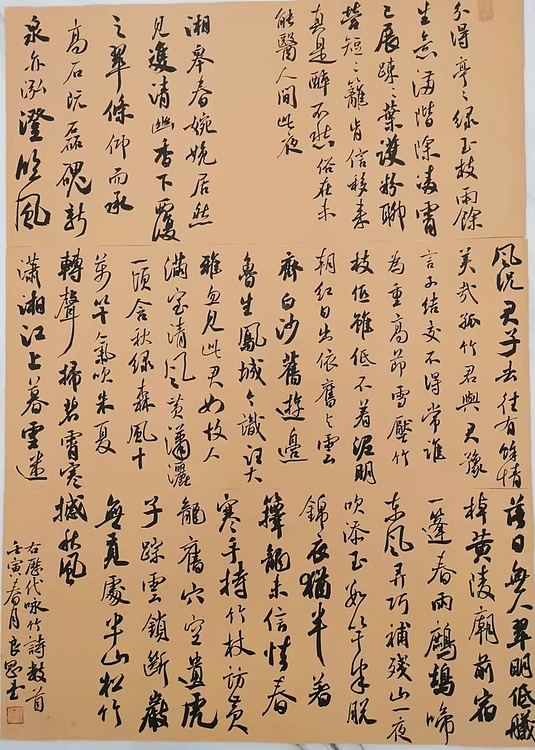 分得亭亭绿玉枝雨餘
生意满階除凌霄
已展疎疎葉護粉聊
誉短短籬肯信移来
真是醉不愁俗在未
能醫人間此夜
湘皋春婉娩居然
見瓊清幽香下覆
之翠條仰而承
高石既磊磈新
泉亦泓澄臨風
風況君子去住有餘情
美哉孤竹君與君豫
言子結交不得常誰
為重高節雪壓竹
枝低雖低不着泥明
朝紅日出依舊与雲
齊白沙舊遊邊
魯生鳳城今識汪大
雅忽見此君如故人
滿室清風黄瀟灑
一頃含秋绿森風十
萬竿氣吹朱夏
轉聲掃碧霄寒
瀟湘江上暮雲迷
落日無人翠明低艤
棹黄陵廟前宿
一蓬春雨鷓鴣啼
东風弄巧補殘山一夜
吹添玉数竿半脱
錦衣猶半著
籜龍未信怯春
寒手持竹杖訪黄
龍舊穴空遺虎
子踪雲鎖斷巖
無覓處半山松竹
撼秋風
右歷代咏竹詩数首
壬寅春月良思书